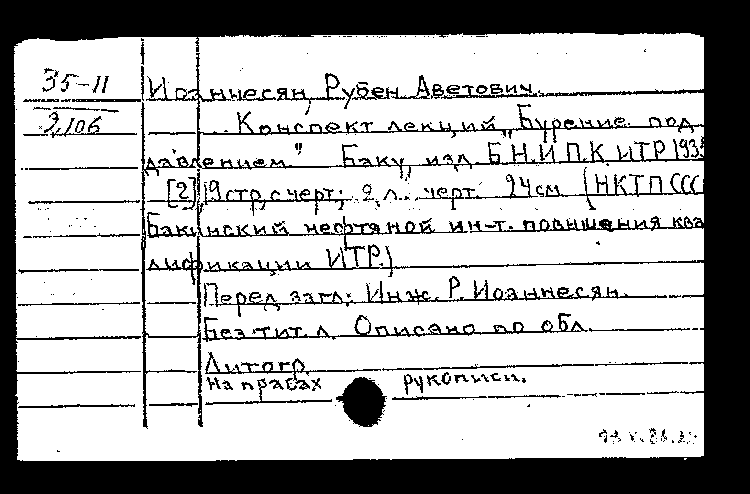 35-11
Иоаннесян, Рубен Аветович.
3,106
... Конспект лекций „Бурение под
давлением." Баку, изд. Б.Н.И.П.К. ИТР 1935
[2], 19 стр, с черт; 2 л. черт. 24 см (НКТП ССС
Бакинский нефтяной ин-т. повышения ква
лификации ИТР.)
Перед загл: Инж. Р. Иоаннесян.
Без тит. л. Описано по обл.
Литогр.
На правах рукописи.